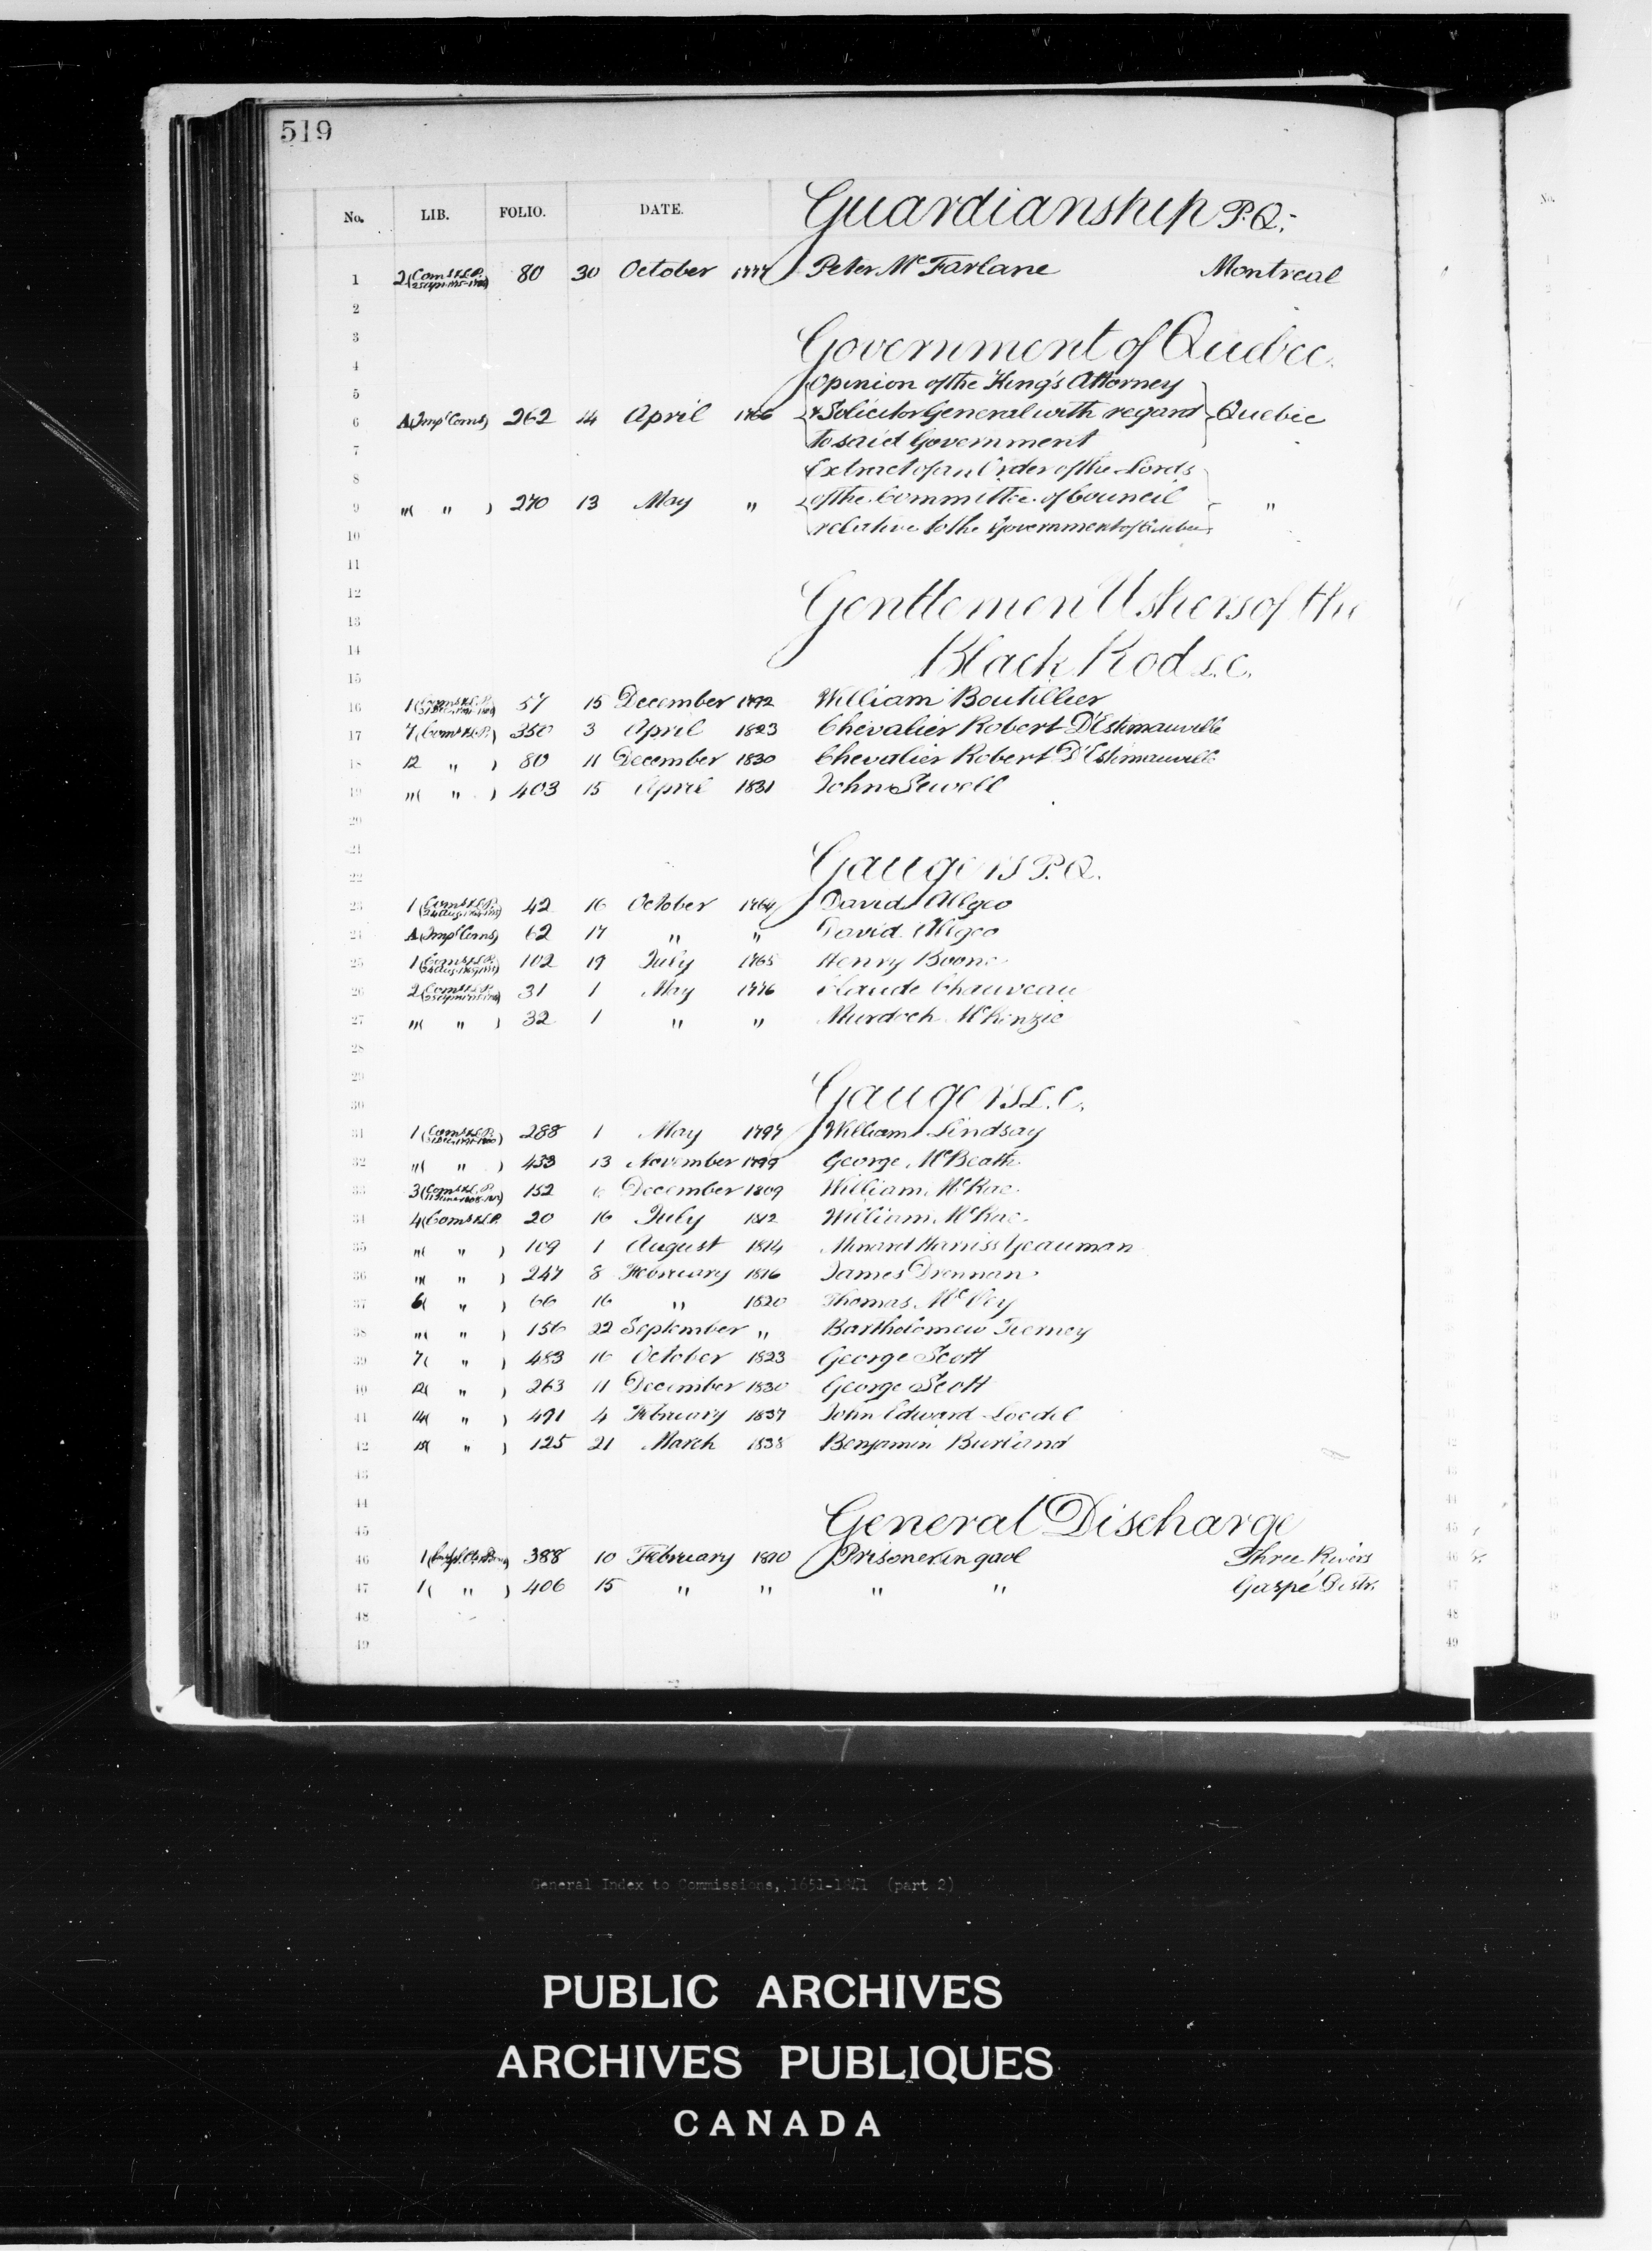 519
No. LIB. FOLIO. DATE. Guardianship P.Q.
1 2 80 30 October 1777 Peter McFarlane Montreal
2
3 Government of Quebec.
4
5 Opinion of the King's Attorney
6 A (Impl Coms) 262 14 April 1766 & Solicitor General with regard Quebec
7 to said Government
8 Extract of an Order of the Lords
9 "( " ) 270 13 May " of the Committee of Council "
10 relative to the Government of Quebec
11
12 Gentlemen Ushers of the
13
14 Black Rod L.C.
15
16 1 57 15 December 1792 William Boutillier
17 7 (Coms K.L.P.) 350 3 April 1823 Chevalier Robert D'Estimauville
18 12 " ) 80 11 December 1830 Chevalier Robert D'Estimauville
19 "( " ) 403 15 April 1831 John Sewell
20
21 Gaugers P.Q.
22
23 1 42 16 October 1764 David Allgeo
24 A (Impl Coms) 62 17 " " David Allgeo
25 1 102 19 July 1765 Henry Boone
26 2 31 1 May 1776 Claude Chauveau
27 "( " ) 32 1 " " Murdoch McKenzie
28
29 Gaugers L.C.
30
31 1 288 1 May 1797 William Lindsay
32 "( " ) 433 13 November 1799 George McBeath
33 3 152 December 1809 William McRae
34 4 (Coms K.L.P. 20 16 July 1812 William McRae
35 "( " ) 109 1 August 1814 Menard Harriss Yeauman
36 "( " ) 247 8 February 1816 James Drennan
37 6( " ) 66 16 " 1820 Thomas
38 "( " ) 156 22 September " Bartholomew Tierney
39 7( " ) 483 16 October 1823 George Scott
40 12( " ) 263 11 December 1830 George Scott
41 14( " ) 491 4 February 1837 John Edward Loedel
42 15( " ) 125 21 March 1838 Benjamin Burland
43
44 General Discharge
45
46 1 388 10 February 1810 Prisoners in gaol Three Rivers
47 1( " ) 406 15 " " " " Gaspé Distr.
48
49
General Index to Commissions, 1651-1841 (part 2)
PUBLIC ARCHIVES
ARCHIVES PUBLIQUES
CANADA